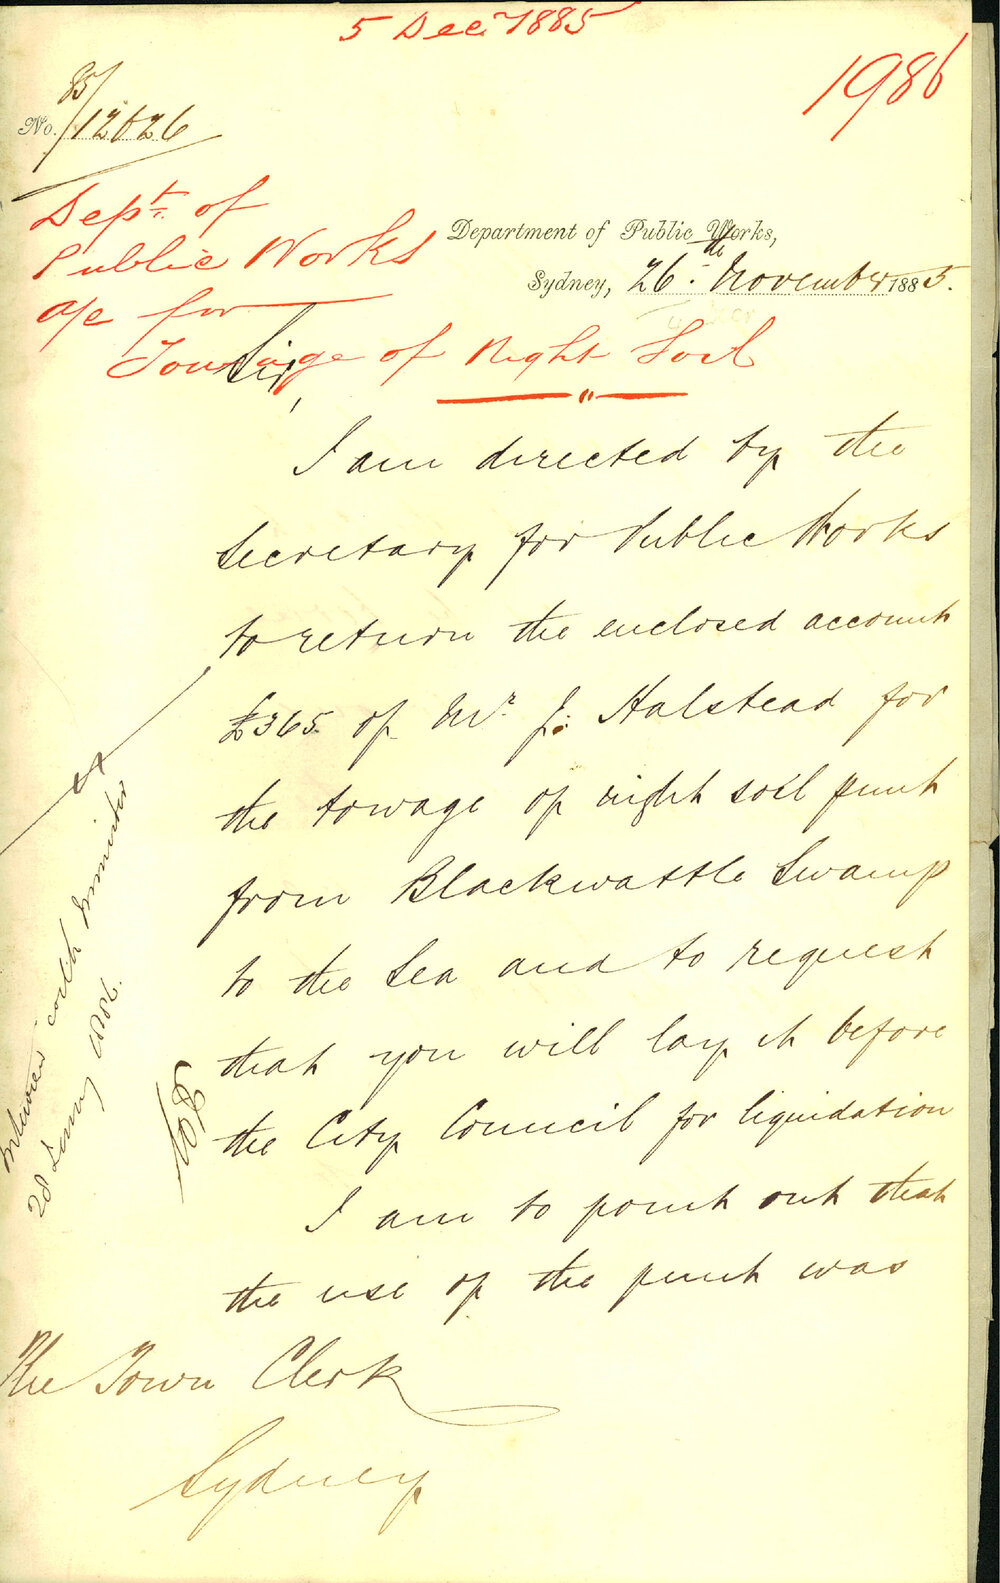 5 Decr 1885
1986
85/
No. 12626
Dept. of
Public Works
a/c for
Towage of Night Soil
Department of Public Works,
Sydney, 26th November 1885.
Sir,
I am directed by the
Secretary for Public Works
to return the enclosed account
£365 of Mr J. Halstead for
the towage of night soil punt
from Blackwattle Swamp
to the Sea and to request
that you will lay it before
the City Council for liquidation
I am to point out that
the use of the punt was
The Town Clerk
Sydney
Interview with Minister